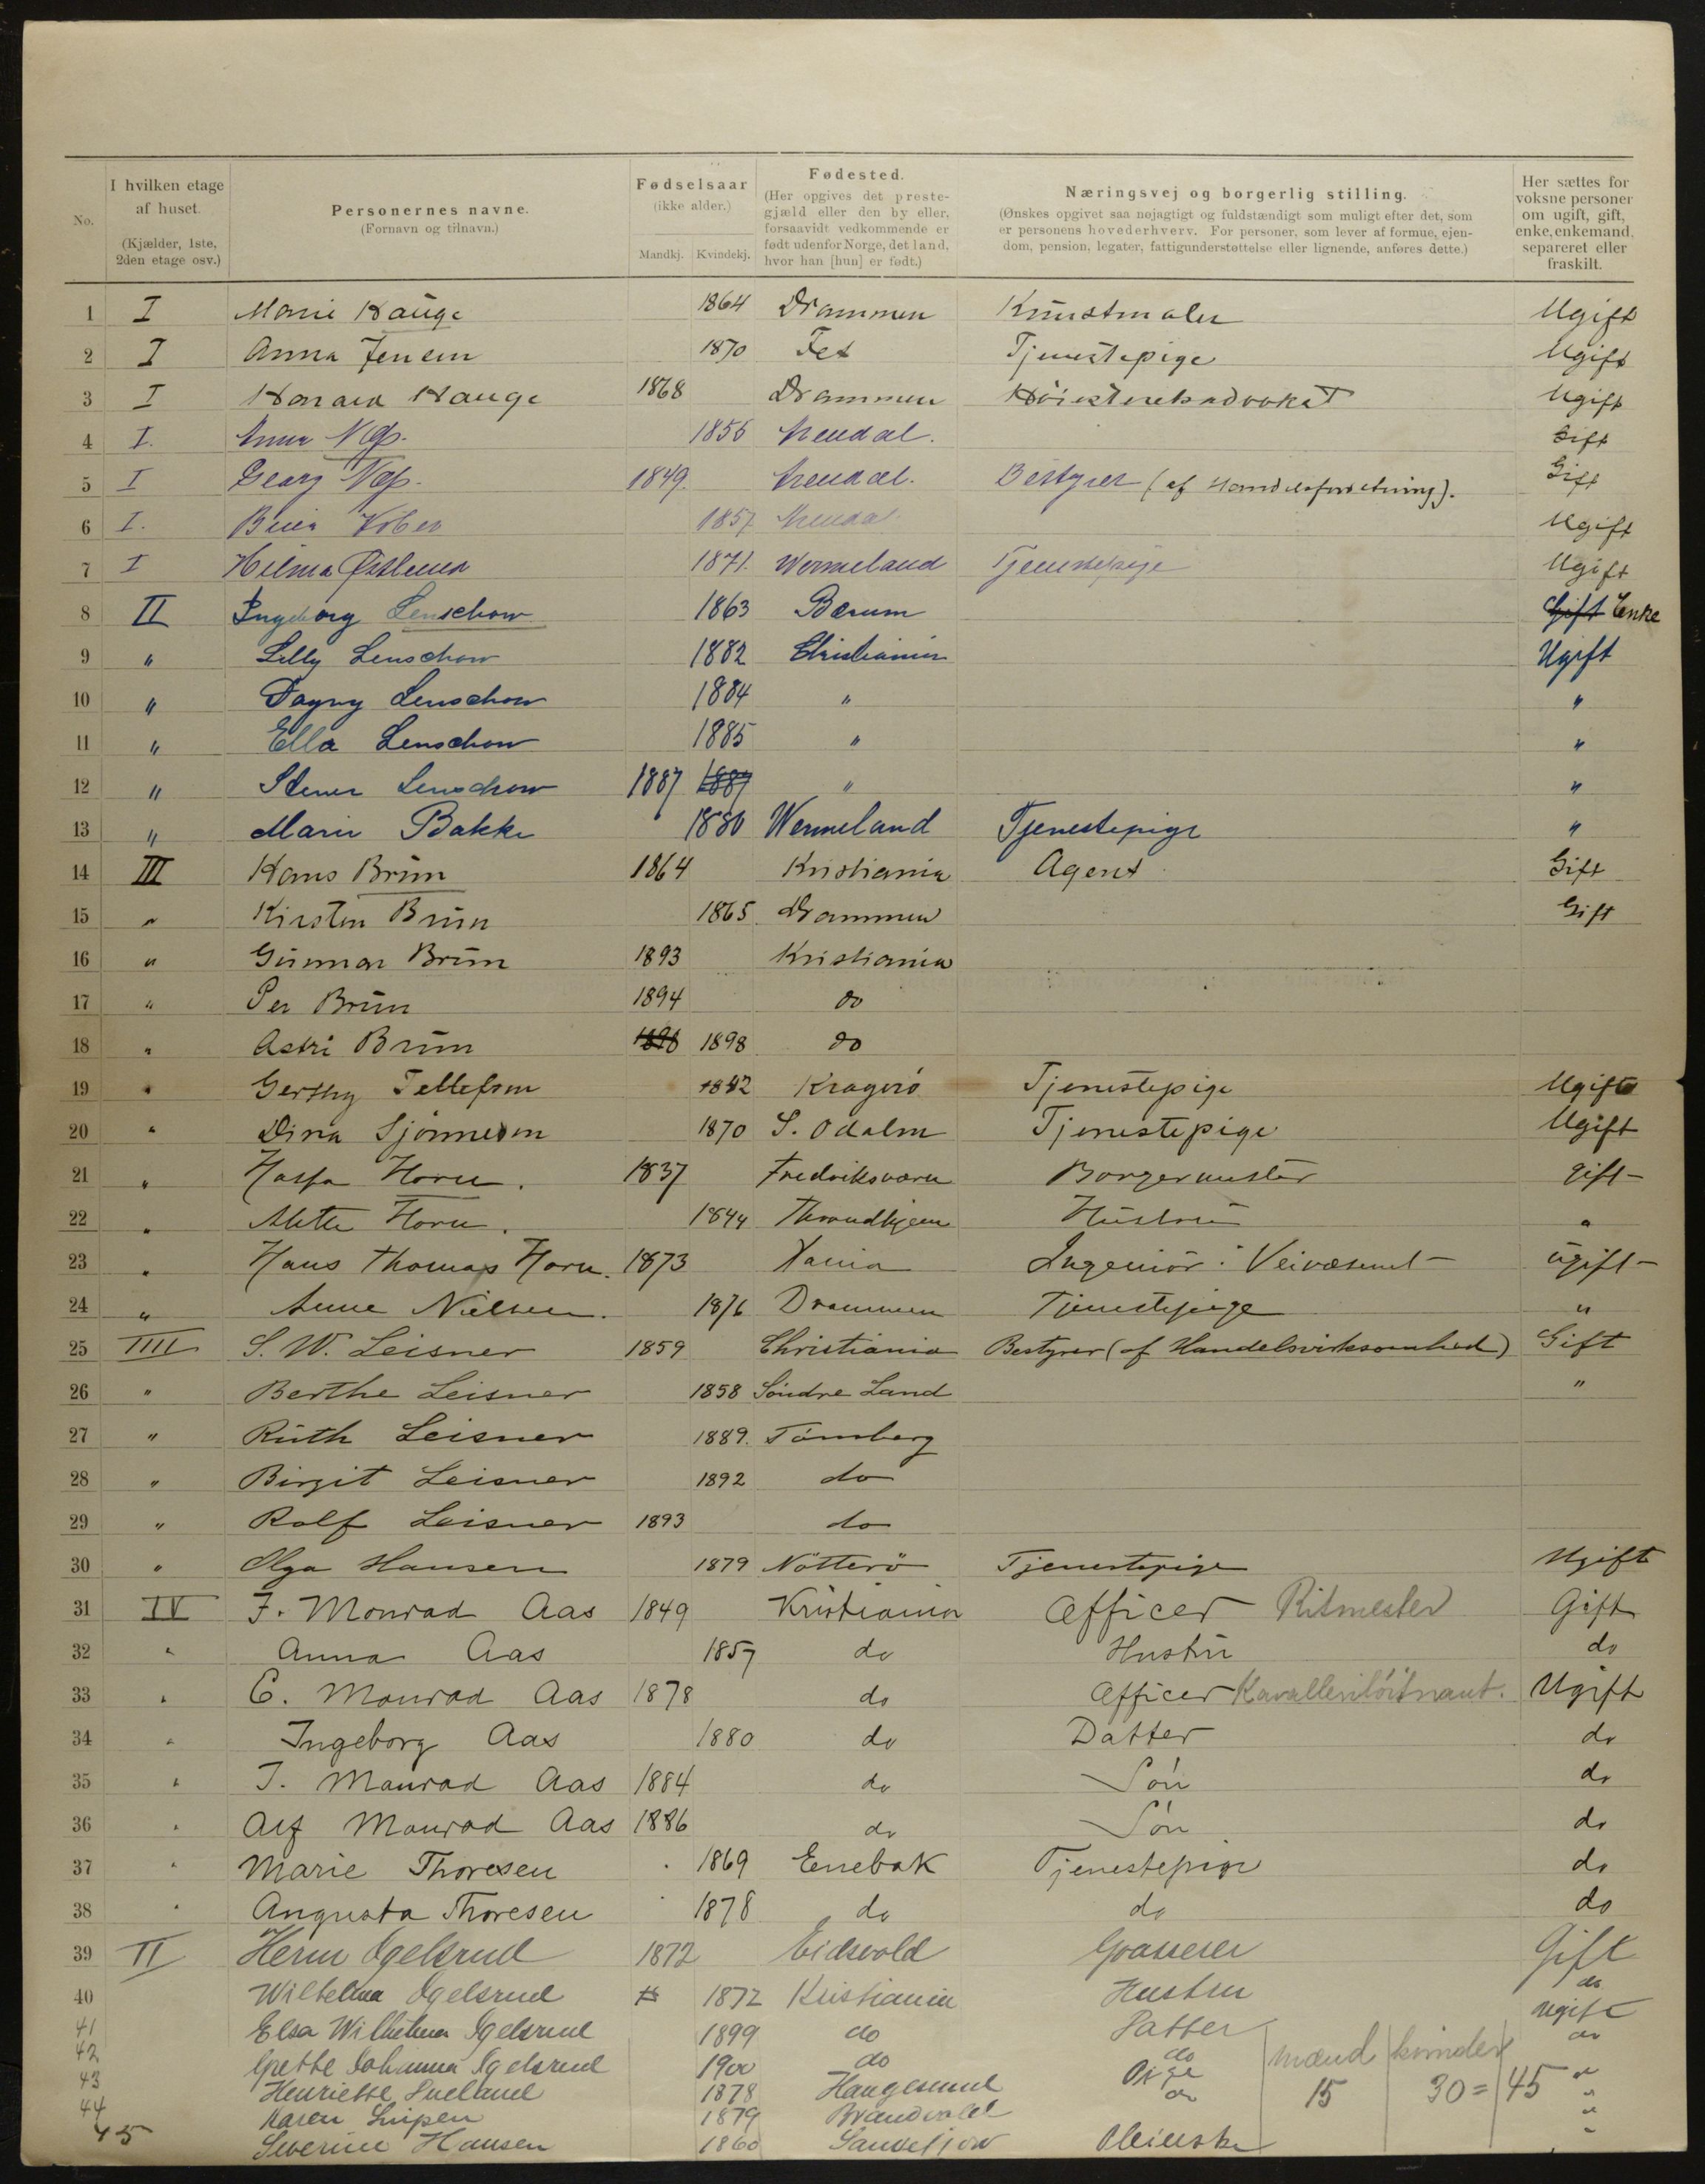 No.
I hvilken etage af huset. (Kjælder, 1ste, 2den etage osv.)
Personernes navne. (Fornavn og tilnavn.)
Fødselsaar (ikke alder.) Mandkj. Kvindekj.
Fødested. (Her opgives det prestegjæld eller den by eller, forsaavidt vedkommende er født udenfor Norge, det land, hvor han [hun] er født.)
Næringsvej og borgerlig stilling. (Ønskes opgivet saa nøjagtigt og fuldstændigt som muligt efter det, som er personens hovederhverv. For personer, som lever af formue, ejendom, pension, legater, fattigunderstøttelse eller lignende, anføres dette.)
Her sættes for voksne personer om ugift, gift, enke, enkemand, separeret eller fraskilt.
1 I Marie Hauge 1864 Drammen Kunstmaler Ugift
2 I Anna Jensen 1870 Fet Tjenestepige Ugift
3 I Harald Hauge 1868 Drammen Høiesteretsadvokat Ugift
4 I. Anna 1856 Arendal. Gift
5 I Georg 1849. Arendal. Bestyrer (af Handelsforretning). Gift
6 I. 1857 Arendal Ugift
7 I Hilma Østlund 1871. Wermeland Tjenestepige Ugift
8 II Ingeborg Lenschow 1863 Bærum Gift Enke
9 " Lilly Lenschow 1882 Christiania Ugift
10 " Dagny Lenschow 1884 " "
11 " Ella Lenschow 1885 " "
12 " Stener Lenschow 1887 1887 " "
13 " Marie Bakke 1880 Wermeland Tjenestepige "
14 III Hans Brun 1864 Kristiania Agent Gift
15 " Kirsten Brun 1865 Drammen Gift
16 " Gunnar Brun 1893 Kristiania
17 " Per Brun 1894 do
18 " Astri Brun 1898 1898 do
19 " Tellefsen 1842 Kragerö Tjenestepige Ugift
20 " Dina 1870 S. Odalen Tjenestepige Ugift
21 " Horn. 1837 Fredriksværn Borgermester gift
22 " Horn. 1844 Throndhjem Hustru "
23 " Hans Thomas Horn. 1873 Xania Ingeniör i Veivæsenet ugift
24 " Anne Nielsen. 1876 Drammen Tjenestepige "
25 IIII S. W. Leisner 1859 Christiania Bestyrer (af Handelsvirksomhed) Gift
26 " Berthe Leisner 1858 Söndre Land "
27 " Ruth Leisner 1889. Tönsberg
28 " Birgit Leisner 1892 do
29 " Rolf Leisner 1893 do
30 " Olga Hansen 1879 Nötterö Tjenestepige Ugift
31 IV F. Monrad Aas 1849 Kristiania Officer Ritmester Gift
32 " Anna Aas 1857 do Hustru do
33 " C. Monrad Aas 1878 do Officer Kavalleriløitnant. Ugift
34 " Ingeborg Aas 1880 do Datter do
35 " J. Monrad Aas 1884 do Sön do
36 " Alf Monrad Aas 1886 do Sön do
37 " Marie Thoresen 1869 Enebak Tjenestepige do
38 " Augusta Thoresen 1878 do do do
39 II Herm Ogelsrud 1872 Eidsvold Grosserer Gift
40 Wilhelma Ogelsrud 1872 Kristiania Hustru do
41 Elsa Wilhelma Ogelsrud 1899 do Datter ugift
42 Grethe Johanna Ogelsrud 1900 do do do
43 Henriette 1878 Haugesund Pige "
44 Karen 1879 Brandvold do "
45 Severine Hansen 1860 Sandefjord "
mænd kvinder
15 30 = 45